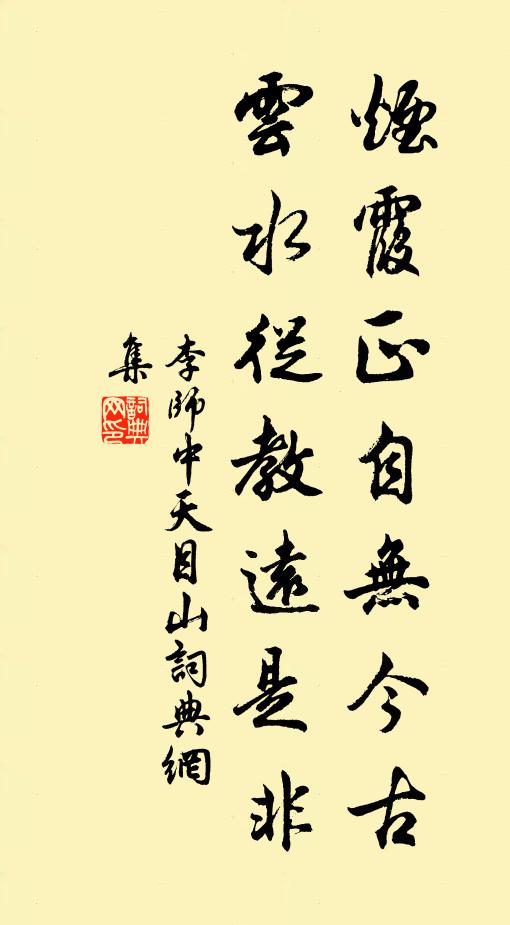 煙霞正自無今古
雲水從教遠是非
李師中天目山詞典網
集
詞典网印